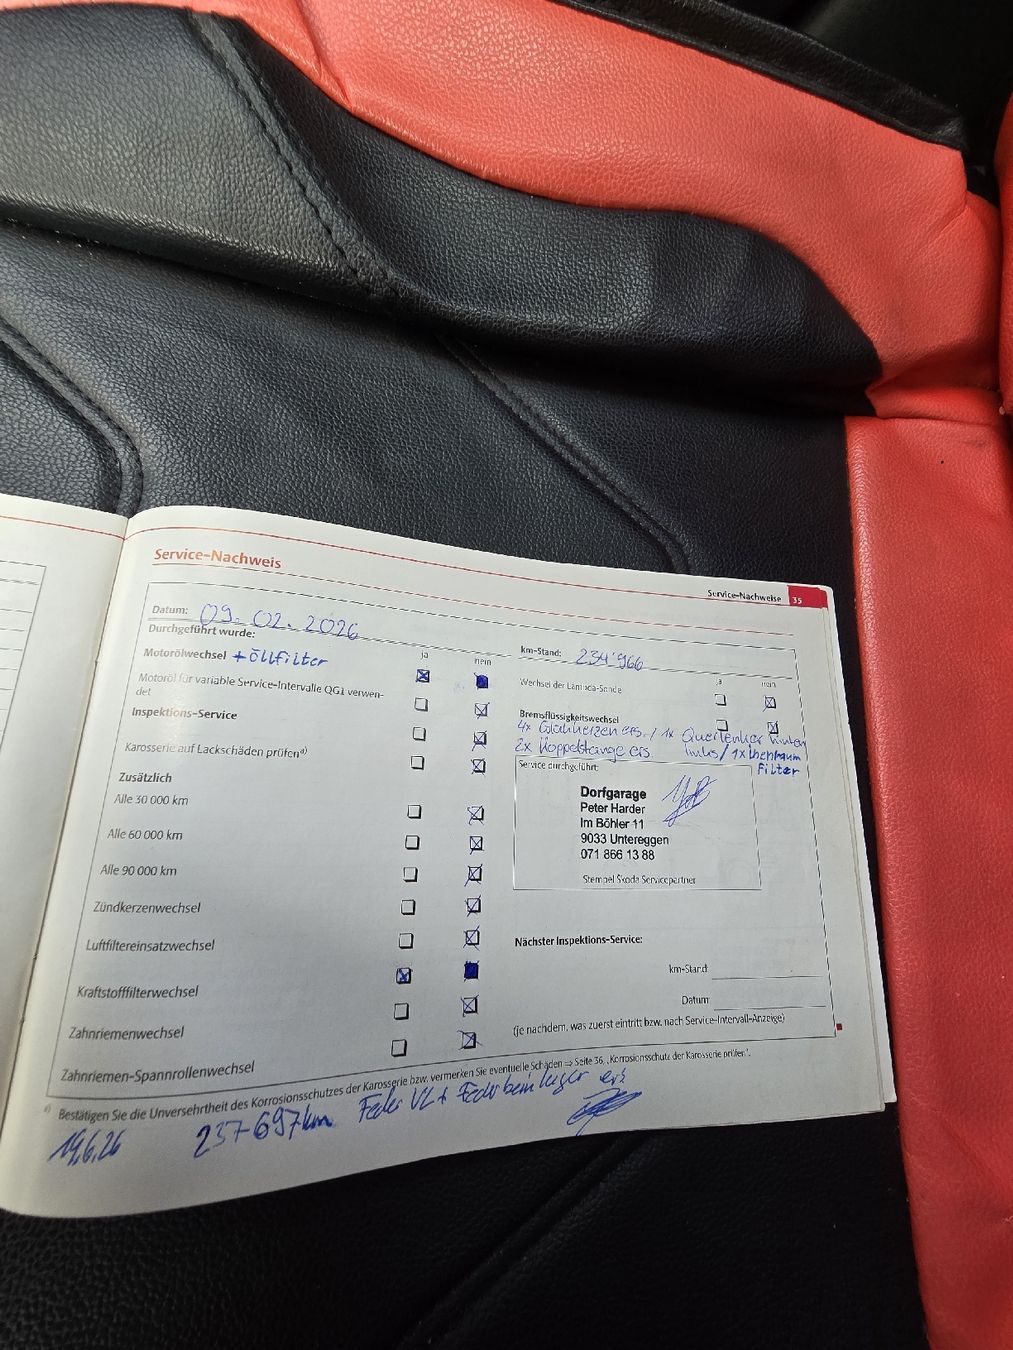 Service-Nachweis
Service-Nachweise 35
Datum: 09.02.2026
km-Stand: 234'966
Durchgeführt wurde:
ja nein
Motorölwechsel + Öllfilter
Motoröl für variable Service-Intervalle QG1 verwen-
det
Inspektions-Service
Karosserie auf Lackschäden prüfen a)
Zusätzlich
Alle 30 000 km
Alle 60 000 km
Alle 90 000 km
Zündkerzenwechsel
Luftfiltereinsatzwechsel
Kraftstofffilterwechsel
Zahnriemenwechsel
Zahnriemen-Spannrollenwechsel
ja nein
Wechsel der Lambda-Sonde
Bremsflüssigkeitswechsel
4x Glühkerzen ers. / 1x Querlenker hinten
2x Koppelstange ers links / 1x Innenraum
Filter
Service durchgeführt:
Dorfgarage
Peter Harder
Im Böhler 11
9033 Untereggen
071 866 13 88
Stempel Skoda Servicepartner
Nächster Inspektions-Service:
km-Stand:
Datum:
(je nachdem, was zuerst eintritt bzw. nach Service-Intervall-Anzeige)
a) Bestätigen Sie die Unversehrtheit des Korrosionsschutzes der Karosserie bzw. vermerken Sie eventuelle Schäden ⇒ Seite 36, „Korrosionsschutz der Karosserie prüfen".
19.6.26 237697km Feder VL + Federbeinlager ers